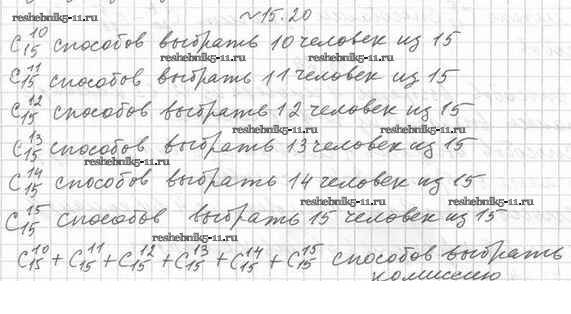 reshebnik5-11.ru
№15.20
C¹⁰₁₅ способов выбрать 10 человек из 15
reshebnik5-11.ru reshebnik5-11.ru
C¹¹₁₅ способов выбрать 11 человек из 15
C¹²₁₅ способов выбрать 12 человек из 15
reshebnik5-11.ru reshebnik5-11.ru
C¹³₁₅ способов выбрать 13 человек из 15
reshebnik5-11.ru
C¹⁴₁₅ способов выбрать 14 человек из 15
reshebnik5-11.ru reshebnik5-11.ru
C¹⁵₁₅ способов выбрать 15 человек из 15
reshebnik5-11.ru
C¹⁰₁₅ + C¹¹₁₅ + C¹²₁₅ + C¹³₁₅ + C¹⁴₁₅ + C¹⁵₁₅ способов выбрать
комиссию